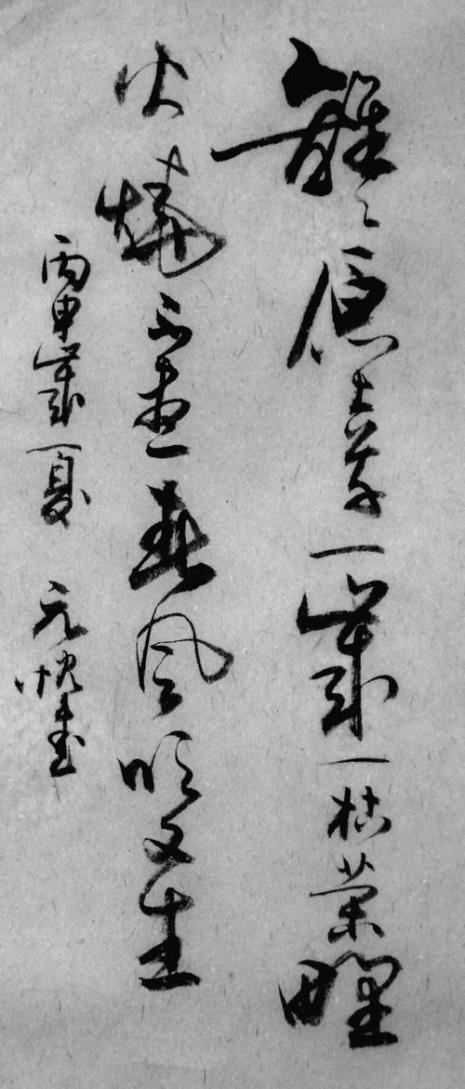 離々原上草一歲一枯榮野
火燒不盡春風吹又生
丙申歲夏 元書